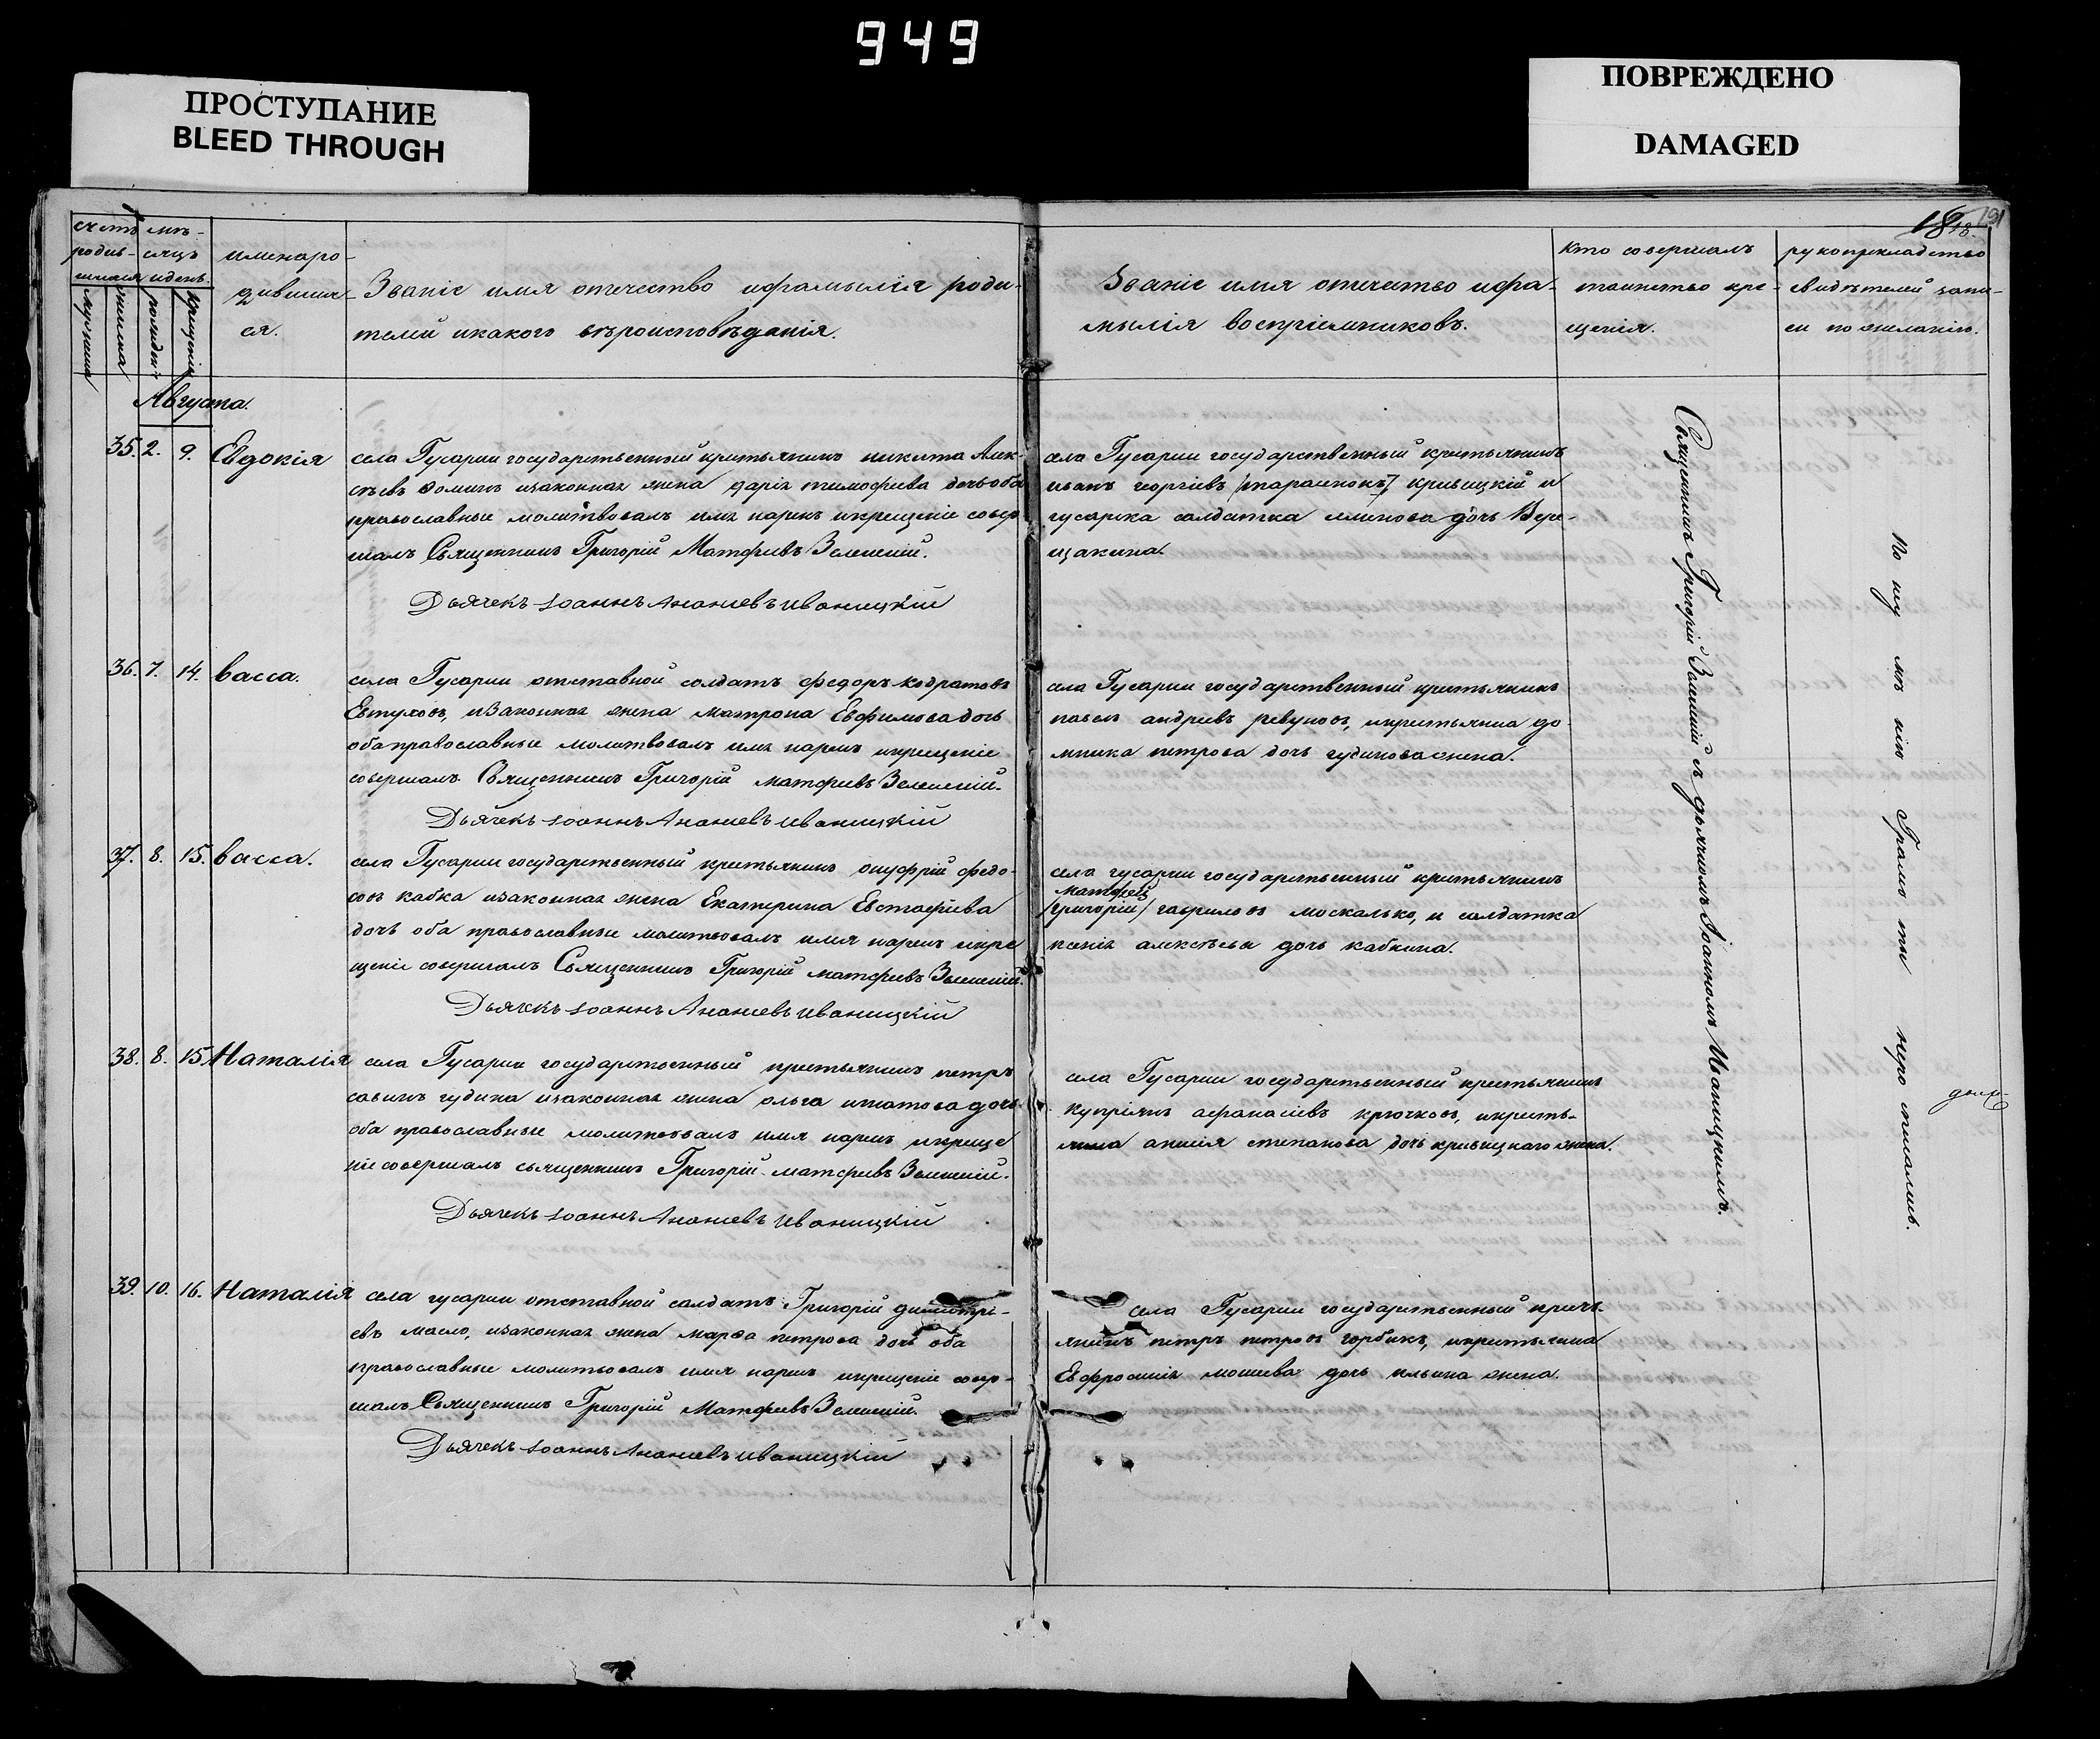 949
ПРОСТУПАНИЕ
BLEED THROUGH
ПОВРЕЖДЕНО
DAMAGED
191
счетъ
родив-
шихся
мужеска
женска
мѣ-
сяцъ
и день.
рожден:
крещенія
имя наро-
дивших-
ся.
Званіе имя отечество ифамилія роди-
телей икакого вѣроисповѣданія.
Званіе имя отечество ифа-
милія воспріемниковъ.
кто совершалъ
таинство кре-
щенія.
рукоприкладство
свидѣтелей запи-
си по желанію.
Августа.
35. 2. 9. Евдокія
села Гусарки государственный крестьянинъ никита Алек-
сѣевъ Фоминъ изаконная жена дарія тимофеева дочь оба
православные молитвовалъ имя нарекъ икрещеніе совер
шалъ Священникъ Григорій Матфеевъ Зеленскій.
Дьячекъ Іоаннъ Ананіевъ Иваницкій
села Гусарки государственный крестьянинъ
иванъ георгіевъ /тарасенокъ/ кривицкій и
гусарска солдатка дочь Вере-
щакина.
36. 7. 14. васса.
села Гусарки отставной солдатъ федоръ кодратовъ
Евтуховъ, изаконная жена матрона Евфимова дочь
оба православные молитвовалъ имя нарекъ икрещеніе
совершалъ Священникъ Григорій матфеевъ Зеленскій.
Дьячекъ Іоаннъ Ананіевъ Иваницкій
села Гусарки государственный крестьянинъ
павелъ андреевъ ревуновъ, икрестьянка до-
мника петрова дочь гудинова жена.
37. 8. 15. васса.
села Гусарки государственный крестьянинъ онуфрій федо-
совъ кабка изаконная жена Екатерина Евстафіева
дочь оба православные молитвовалъ имя нарекъ икре
щеніе совершалъ Священникъ Григорій матфеевъ Зеленскій.
Дьячекъ Іоаннъ Ананіевъ Иваницкій
села гусарки государственный крестьянинъ
матфей
/григорій/ гавриловъ москалько, и солдатка
ксенія алексѣева дочь кабкина.
38. 8. 15. Наталія
села Гусарки государственный крестьянинъ петръ
савинъ гудина изаконная жена ольга игнатова дочь
оба православные молитвовалъ имя нарекъ икреще
ніе совершалъ священникъ Григорій матфеевъ Зеленскій.
Дьячекъ Іоаннъ Ананіевъ Иваницкій
села Гусарки государственный крестьянинъ
купріянъ афанасіевъ крючковъ, икресть-
янка анисія степанова дочь кривицкаго жена.
39. 10. 16. Наталія
села гусарки отставной солдатъ Григорій димитрі-
евъ масло, изаконная жена марфа петрова дочь оба
православные молитвовалъ имя нарекъ икрещеніе совер-
шалъ Священникъ Григорій Матфеевъ Зеленскій.
Дьячекъ Іоаннъ Ананіевъ Иваницкій
села Гусарки государственный кресть-
янинъ петръ петровъ горбикъ, икрестьянка
Евфросинія мошева дочь ильина жена.
Священникъ Григорій Зеленскій съ дьячкомъ Іоанномъ Иваницкимъ.
По неу мѣ нію Грамо ты неро писались.